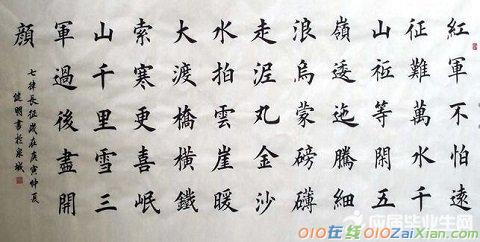 紅軍不怕遠
征難萬水千
山祗等閑五
嶺逶迤騰細
浪烏蒙磅礴
走泥丸金沙
水拍雲崖暖
大渡橋橫鐵
索寒更喜岷
山千里雪三
軍過後盡開
顏
七律長征歲在庚寅仲夏
健明書於泉城
应届毕业生网
010在线010ZaiXian.com